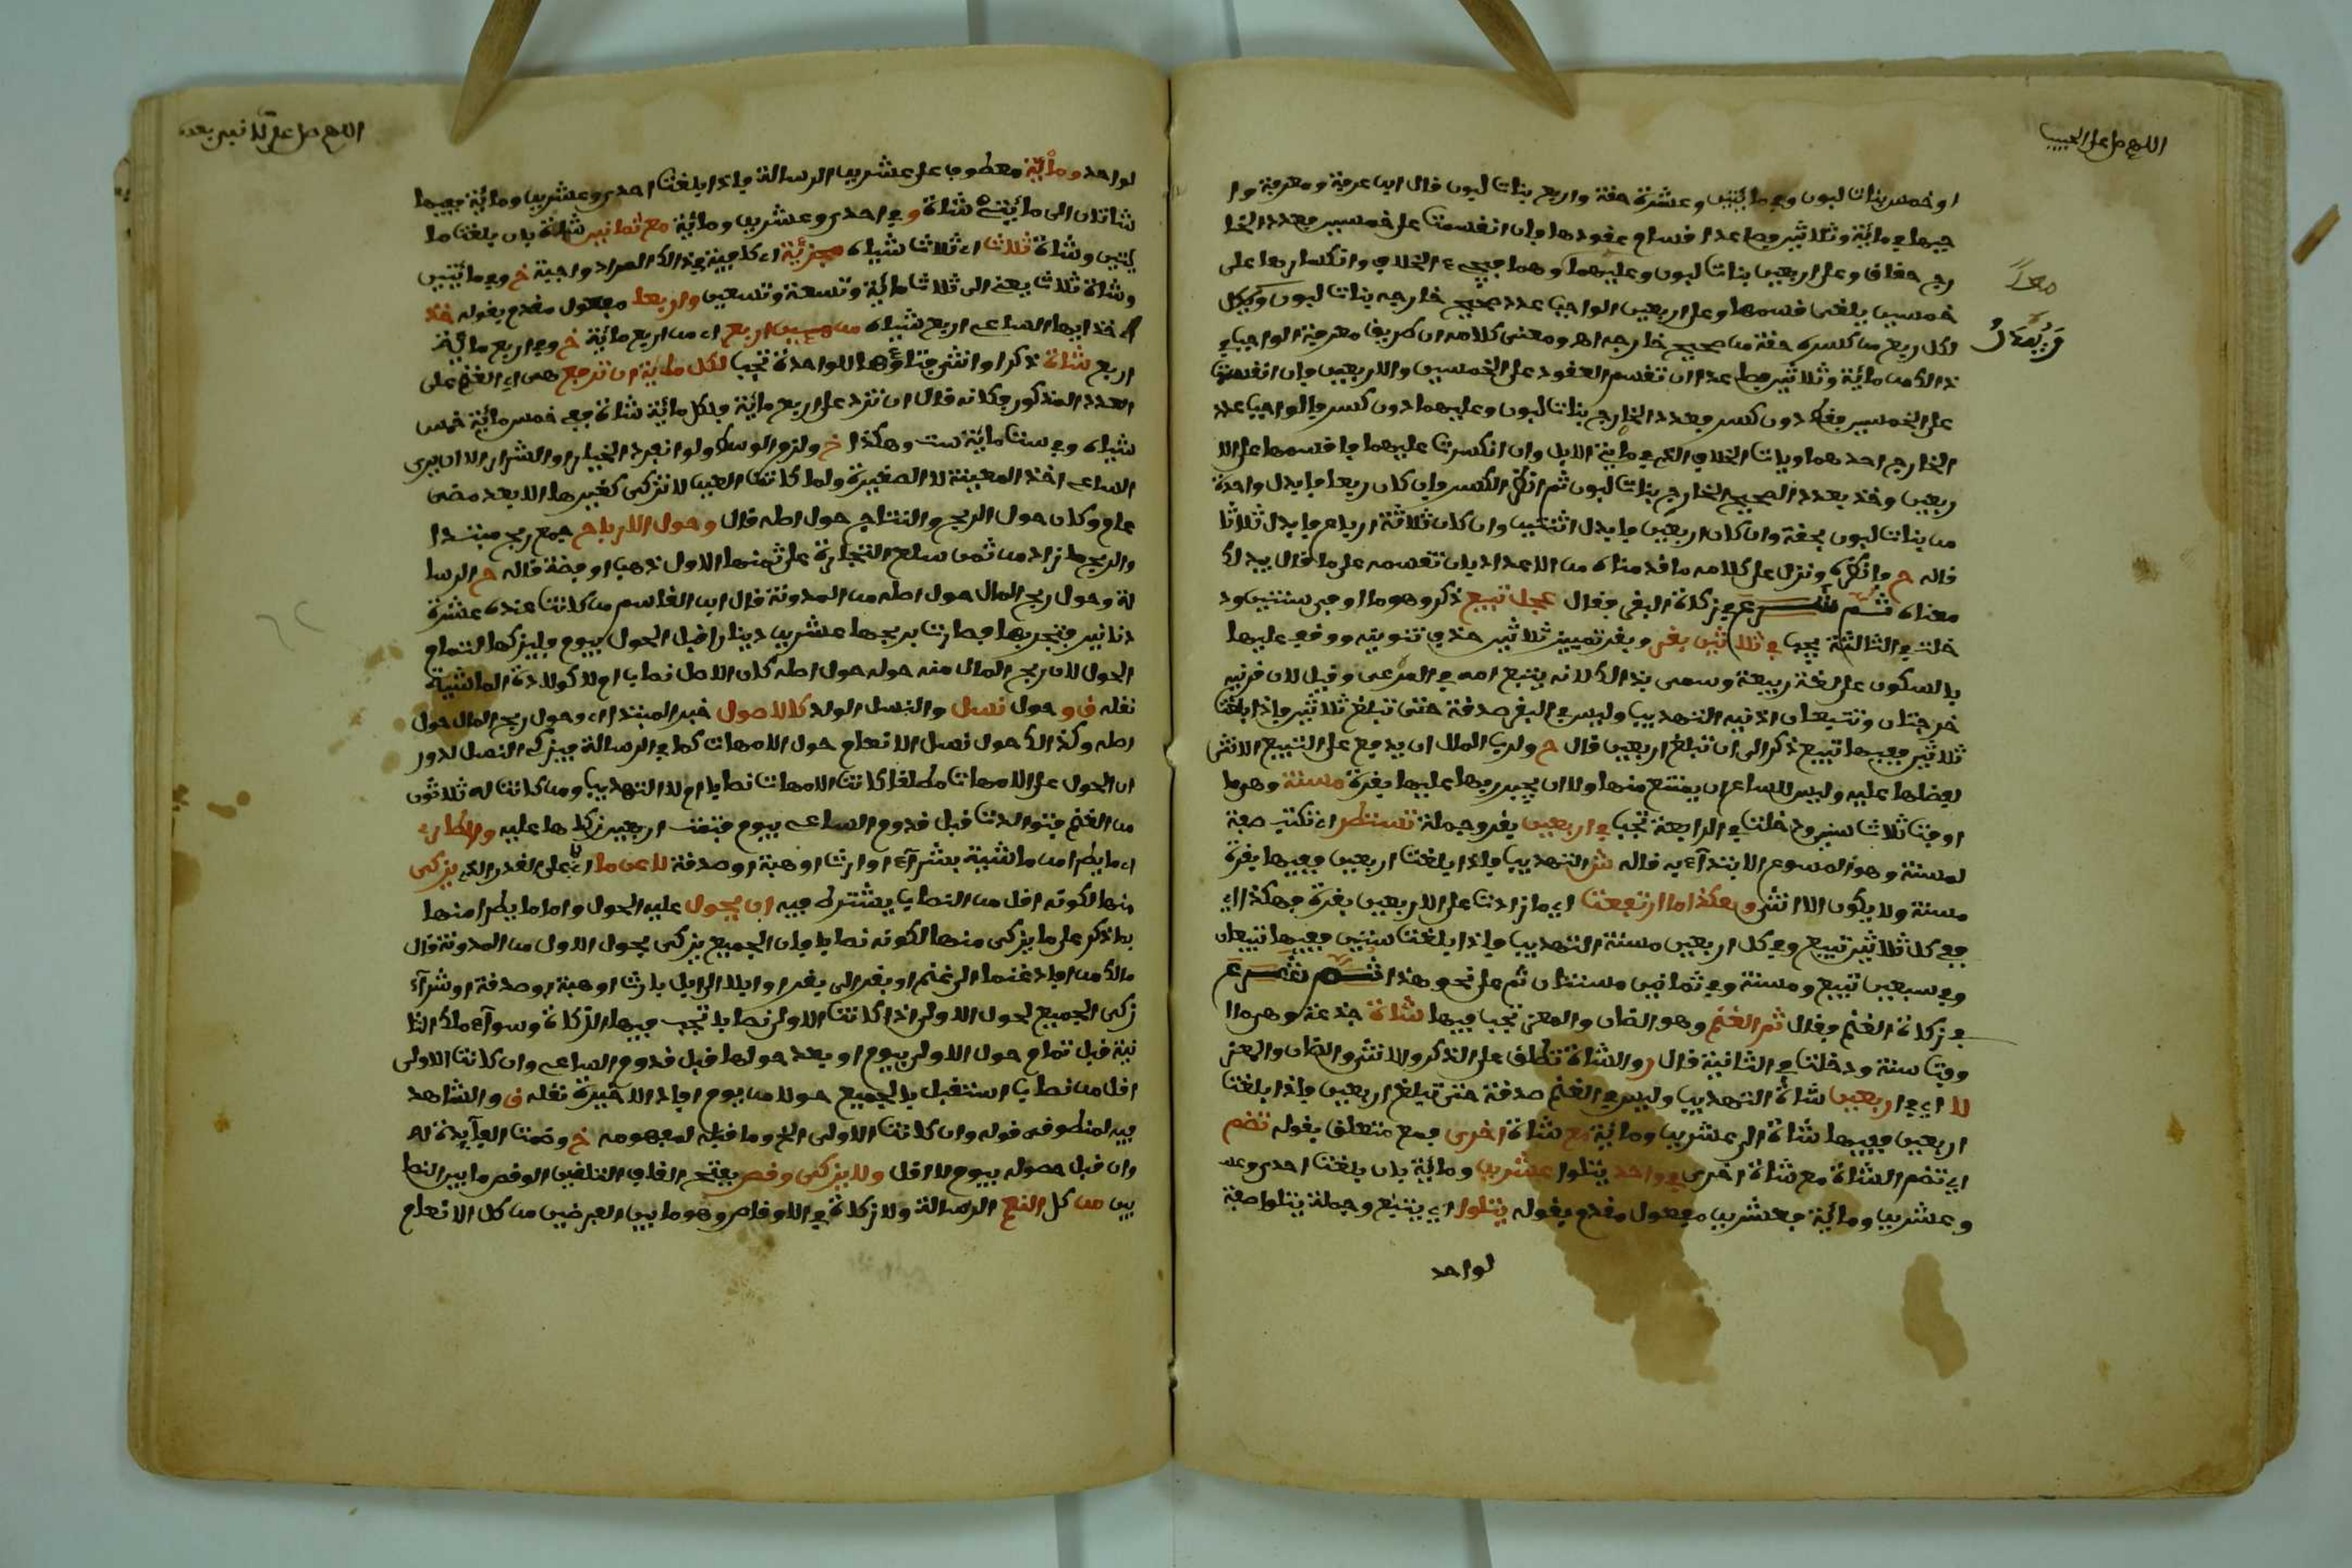 اللهم صل على الحبيب
او خمس بنات لبون وفي مائتين وعشرة حقة واربع بنات لبون قال ابن عرفة ومعرفة وا
جبها في مائة وثلاثين فصاعدا فسام عقودها فان انقسمت على خمسين فعدد الخا
رج حقاق وعلى اربعين بنات لبون وعليهما وهما فيجيء الخلاف وانكسارها على
خمسين يلغى قسمها وعلى اربعين الواجب عدد صحيح خارجه بنات لبون ويبدل
لكل ربع من كسره حقة من صحيح خارجه اهـ ومعنى كلامه ان طريق معرفة الواجب في
ذالك من مائة وثلاثين فصاعدا ان تقسم العقود على الخمسين والاربعين فان انقسمت
على الخمسين فقط دون كسر فعدد الخارج بنات لبون وعليهما دون كسر فالواجب عدد
الخارج احدهما وياتي الخلاف الذي في مائتي الابل وان انكسرت عليهما فاقسمها على الا
ربعين وخذ بعدد الصحيح الخارج بنات لبون ثم انظر الكسر فان كان ربعا فابدل واحدة
من بنات لبون بحقة وان كان اربعين فابدل اثنتين وان كان ثلاثة ارباع فابدل ثلاثا
قاله ح فانظره ونزل على كلامه ما قدمناه من الاعداد بان تقسمه على ما قال يبدلك
معناه ثم شرع في زكاة البقر فقال عجل تبيع ذكر وهو ما اوفى سنتين ود
خلت في الثالثة يجب في ثلاثين بقر وبقر تمييز ثلاثين حذف تنوينه ووقف عليها
بالسكون على لغة ربيعة وسمي بذالك لانه يتبع امه في المرعى وقيل لان قرنيه
خرجتان وتتبعان اذنيه التهذيب وليس في البقر صدقة حتى تبلغ ثلاثين فاذا بلغت
ثلاثين ففيها تبيع ذكر الى ان تبلغ اربعين قال ح ولرب المال ان يدفع على التبيع الانثى
لفضلها عليه وليس للساعي ان يمتنع منها ولا ان يجبر ربها عليها بقرة مسنة وهي ما
اوفت ثلاث سنين ودخلت في الرابعة تجب في اربعين بقر وجملة تستطر اي تكتب صفة
لمسنة وهو المسوغ الابتداء به قاله ش التهذيب فاذا بلغت اربعين ففيها بقرة
مسنة ولا يكون الا انثى وهكذا ما ارتفعت اي ما زادت على الاربعين بقرة فهكذا اي
ففي كل ثلاثين تبيع وفي كل اربعين مسنة التهذيب فاذا بلغت ستين ففيها تبيعان
وفي سبعين تبيع ومسنة وفي ثمانين مسنتان ثم على نحو هذا ثم شرع
في زكاة الغنم فقال ثم الغنم وهو الضان والمعز تجب فيها شاة جذعة وهي ما ا
وفت سنة ودخلت في الثانية قال ر والشاة تطلق على الذكر والانثى والضان والمعز
لا اي في اربعين شاة التهذيب وليس في الغنم صدقة حتى تبلغ اربعين فاذا بلغت
اربعين ففيها شاة الى عشرين ومائة مع شاة اخرى فمع متعلق بقوله تضم
اي تضم الشاة مع شاة اخرى في واحد يتلوا عشرين ومائة بان بلغت احدى وعـ
وعشرين ومائة فعشرين مفعول مقدم بقوله يتلوا اي يتبع وجملة يتلوا صفة
لواحد
اللهم صل على من لا نبي بعده
لواحد ومائة معطوف على عشرين الرسالة فاذا بلغت احدى وعشرين ومائة ففيها
شاتان الى مائتي شاة وفي احدى وعشرين ومائة مع ثمانين شاة بان بلغت ما
ئتين وشاة ثلاث اي ثلاث شياه مجزئة اي كافية في ذالك المراد واجبة خ وفي مائتين
وشاة ثلاث يعني الى ثلاث مائة وتسعة وتسعين واربعا مفعول مقدم بقوله خذ
اي خذ ايها الساعي اربع شياه من مئين اربع اي من اربع مائة خ وفي اربع مائة
اربع شاة ذكرا او انثى فتاؤها للواحدة تجب لكل مائة ان ترفع هي اي الغنم على
العدد المذكور فكانه قال ان تزد على اربع مائة فلكل مائة شاة ففي خمس مائة خمس
شياه وفي ست مائة ست وهكذا خ ولزم الوسط ولو انفرد الخيار او الشرار الا ان يرى
الساعي اخذ المعيبة لا الصغيرة ولما كانت العين لا تزكى كغيرها الا بعد مضي
عام وكان حول الربح والنتاج حول اصله قال وحول الارباح جمع ربح مبتدا
والربح ما زاد من ثمن سلع التجارة على ثمنها الاول ذهب او فضة قاله ح الرسا
لة وحول ربح المال حول اصله من المدونة قال ابن القاسم من كانت عنده عشرة
دنانير فتجر بها فصارت بربحها عشرين دينارا قبل الحول بيوم فليزكها لتمام
الحول لان ربح المال منه حوله حول اصله كان الاصل نصابا ام لا كولادة الماشية
نقله ق و حول نسل والنسل الولد كالاصول خبر المبتدا اي وحول ربح المال حول
اصله وكذالك حول نسل الانعام حول الامهات كما في الرسالة فيزكى النسل لدور
ان الحول على الامهات مطلقا كانت الامهات نصابا ام لا التهذيب ومن كانت له ثلاثون
من الغنم فتوالدت قبل قدوم الساعي بيوم فتمت اربعين زكاها عليه والطارئ
اي ما يطرا من ماشية بشراء او ارث او هبة او صدقة لا عن ما اي على القدر الذي يزكى
منها لكونه اقل من النصاب يشترط فيه ان يحول عليه الحول واما ما يطرا منها
بما ذكر على ما يزكى منها لكونه نصابا فان الجميع يزكى بحول الاول من المدونة قال
مالك من افاد غنما الى غنم او بقر الى بقر او ابلا الى ابل بارث او هبة او صدقة او شراء
زكى الجميع لحول الاولى اذا كانت الاولى نصابا تجب فيها الزكاة وسواء ملك الثا
نية قبل تمام حول الاولى بيوم او بعد حولها قبل قدوم الساعي وان كانت الاولى
اقل من نصاب استقبل بالجميع حولا من يوم افاد الاخيرة نقله ق والشاهد
فيه لمنطوق قوله وان كانت الاولى الخ وما قبله لمفهومه خ وضمت الفايدة له
وان قبل حصوله بيوم لا اقل ولا يزكى وقص بفتح القاف التلقين الوقص ما بين النصا
بين من كل النعم الرسالة ولا زكاة في الاوقاص وهو ما بين الفرضين من كل الانعام